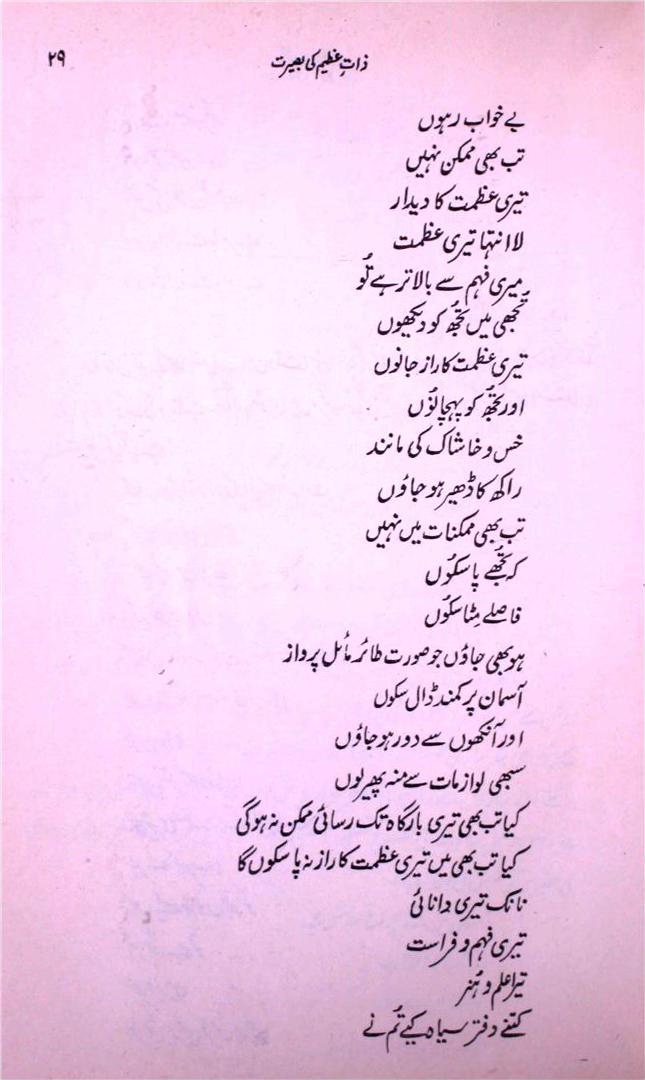 ذاتِ عظیم کی بصیرت ۲۹
بے خواب رہوں
تب بھی ممکن نہیں
تیری عظمت کا دیدار
لا انتہا تیری عظمت
میری فہم سے بالاتر ہے تُو
تجھی میں تجھ کو دیکھوں
تیری عظمت کا راز جانوں
اور تجھ کو پہچانوں
خس و خاشاک کی مانند
راکھ کا ڈھیر ہو جاؤں
تب بھی ممکنات میں نہیں
کہ تجھے پا سکوں
فاصلے مٹا سکوں
ہو بھی جاؤں جو صورت طائر مائل پرواز
آسمان پر کمند ڈال سکوں
اور آنکھوں سے دور ہو جاؤں
سبھی لوازمات سے منہ پھیر لوں
کیا تب بھی تیری بارگاہ تک رسائی ممکن نہ ہوگی
کیا تب بھی میں تیری عظمت کا راز نہ پا سکوں گا
نانک تیری دانائی
تیری فہم و فراست
تیرا علم و ہُنر
کتنے دفتر سیاہ کیے تُم نے